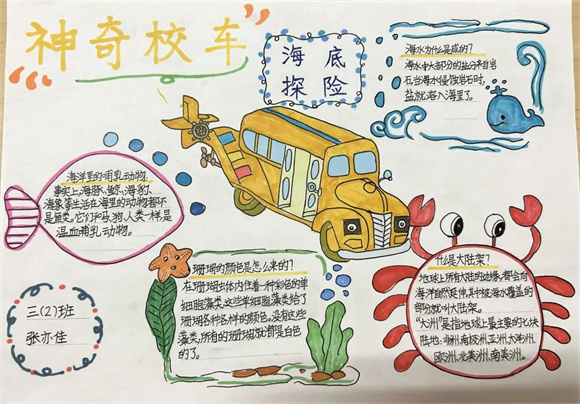 神奇校车
海底
探险
海水为什么是咸的?
海水中大部分的盐分来自岩
石当海水侵蚀岩石时,
盐就溶入海里了。
海洋里的哺乳动物
事实上,海豚、鲸、海豹、
海象等生活在海里的动物都不
是鱼类。它们和马、狗、人类一样是
温血哺乳动物。
珊瑚的颜色是怎么来的?
在珊瑚虫体内住着一种彩色的单
细胞藻类,这些单细胞藻类给了
珊瑚各种各样的颜色。没有这些
藻类,所有的珊瑚就都是白色
的了。
什么是大陆架?
地球上所有大陆的边缘,都会向
海洋自然延伸,其中被海水覆盖的
部分就叫大陆架。
“大洲”是指地球上最主要的七块
陆地:非洲、南极洲、亚洲、大洋洲、
欧洲、北美洲、南美洲。
三(2)班
张亦佳